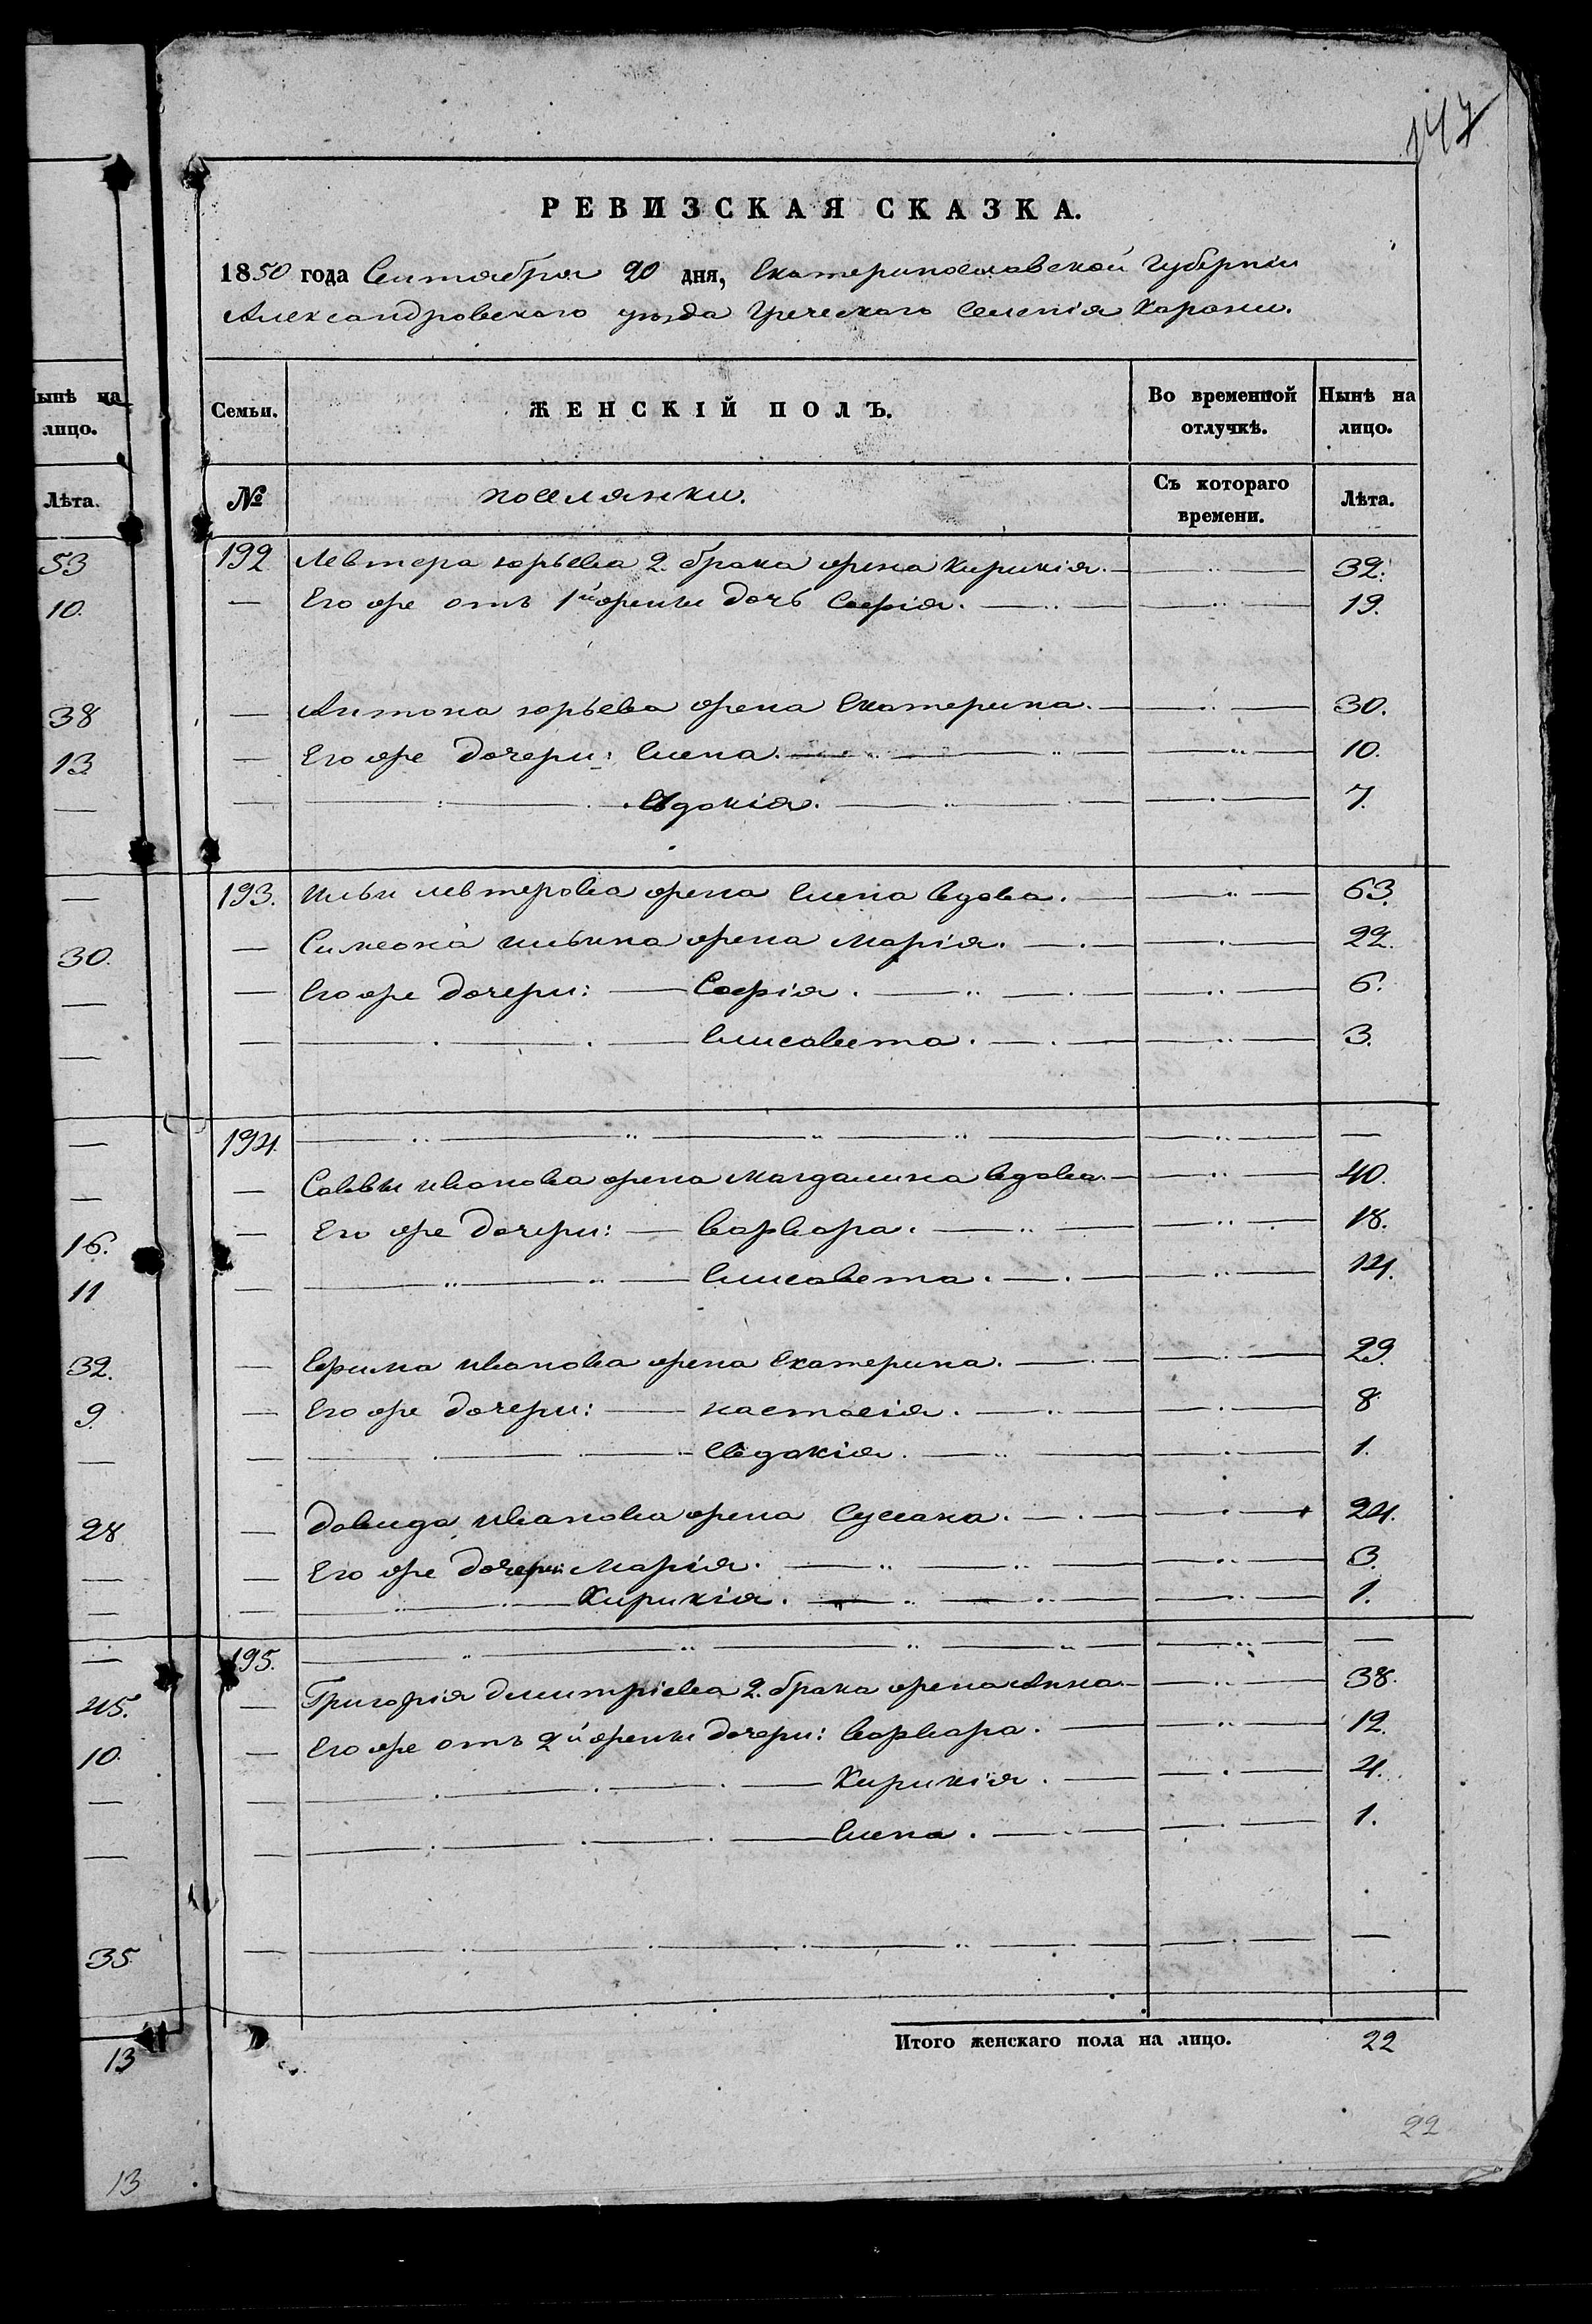 147
РЕВИЗСКАЯ СКАЗКА.
1850 года Сентября 20 дня, Екатеринославской Губернии
Александровского уезда Греческого Селения Карани.
Нынѣ на лицо.
Лѣта.
53
10.
38
13
30.
16.
11
32.
9.
28
45.
10.
35
13
13
Семьи. ЖЕНСКІЙ ПОЛЪ. Во временной отлучкѣ. Нынѣ на лицо.
№ поселянки. Съ котораго времени. Лѣта.
192 Левтера юрьева 2. брака жена Кирикія. 32.
Его же отъ 1й жены дочь Софія. 19.
Антона юрьева жена Екатерина. 30.
Его же дочери: Елена. 10.
Евдокія. 7.
193. Ильи левтерова жена Елена вдова. 63.
Симеона ильина жена Марія. 22.
Его же дочери: Софія. 6.
Елисавета. 3.
194.
Саввы иванова жена Магдалина вдова. 40.
Его же дочери: Варвара. 18.
Елисавета. 14.
Ефима иванова жена Екатерина. 29.
Его же дочери: настасія. 8
Евдокія. 1.
Давида иванова жена Сусана. 24.
Его же дочери: Марія. 3.
Кирикія. 1.
195.
Григорія дмитріева 2. брака жена Анна. 38.
Его же отъ 2й жены дочери: Варвара. 12.
Кирикія. 4.
Елена. 1.
Итого женскаго пола на лицо. 22
22